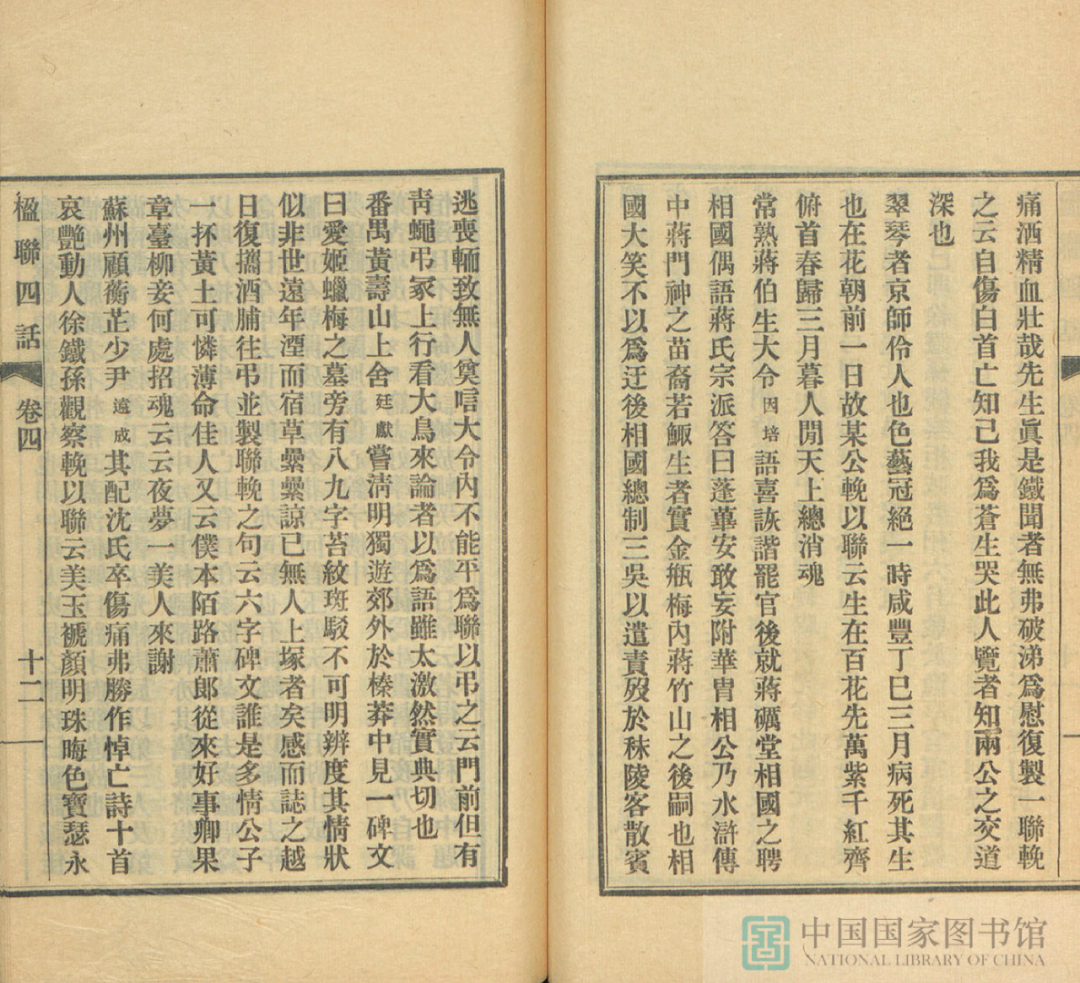 痛洒精血壯哉先生眞是鐵聞者無弗破涕爲慰復製一聯輓
之云自傷白首亡知己我爲蒼生哭此人覽者知兩公之交道
深也
翠琴者京師伶人也色藝冠絕一時咸豐丁巳三月病死其生
也在花朝前一日故某公輓以聯云生在百花先萬紫千紅齊
俯首春歸三月暮人閒天上總消魂
常熟蔣伯生大令因培語喜詼諧罷官後就蔣礪堂相國之聘
相國偶語蔣氏宗派答曰蓬蓽安敢妄附華胄相公乃水滸傳
中蔣門神之苗裔若鯫生者實金瓶梅內蔣竹山之後嗣也相
國大笑不以爲迕後相國總制三吳以遣責歿於秣陵客散賓
逃喪輀致無人奠唁大令內不能平爲聯以弔之云門前但有
靑蠅弔冢上行看大鳥來論者以爲語雖太激然實典切也
番禺黃壽山上舍廷獻嘗淸明獨遊郊外於榛莽中見一碑文
曰愛姬蠟梅之墓旁有八九字苔紋斑駁不可明辨度其情狀
似非世遠年湮而宿草纍纍諒已無人上塚者矣感而誌之越
日復攜酒脯往弔並製聯輓之句云六字碑文誰是多情公子
一抔黃土可憐薄命佳人又云僕本陌路蕭郎從來好事卿果
章臺柳妾何處招魂云云夜夢一美人來謝
蘇州顧蘅芷少尹遠成其配沈氏卒傷痛弗勝作悼亡詩十首
哀艷動人徐鐵孫觀察輓以聯云美玉褫顏明珠晦色寶瑟永
楹聯四話 卷四 十二
中国国家图书馆
NATIONAL LIBRARY OF CHINA